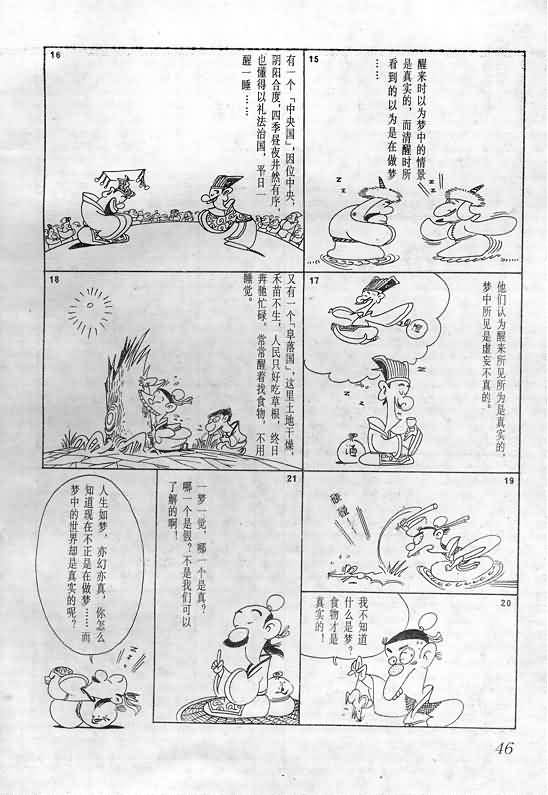 15
醒来时以为梦中的情景
是真实的，而清醒时所
看到的以为是在做梦
……
16
有一个「中央国」，因位中央，
阴阳合度，四季昼夜井然有序，
也懂得以礼法治国，平日一
醒一睡……
17
他们认为醒来所见所为是真实的，
梦中所见是虚妄不真的。
酒
18
又有一个「阜落国」，这里土地干燥，
禾苗不生，人民只好吃草根，终日
奔驰忙碌，常常醒着找食物，不用
睡觉。
19
碰
碰
20
我不知道
什么是梦？
食物才是
真实的！
21
一梦一觉，哪一个是真？
哪一个是假？不是我们可以
了解的啊！
人生如梦，亦幻亦真，你怎么
知道现在不正是在做梦……而
梦中的世界却是真实的呢？
46